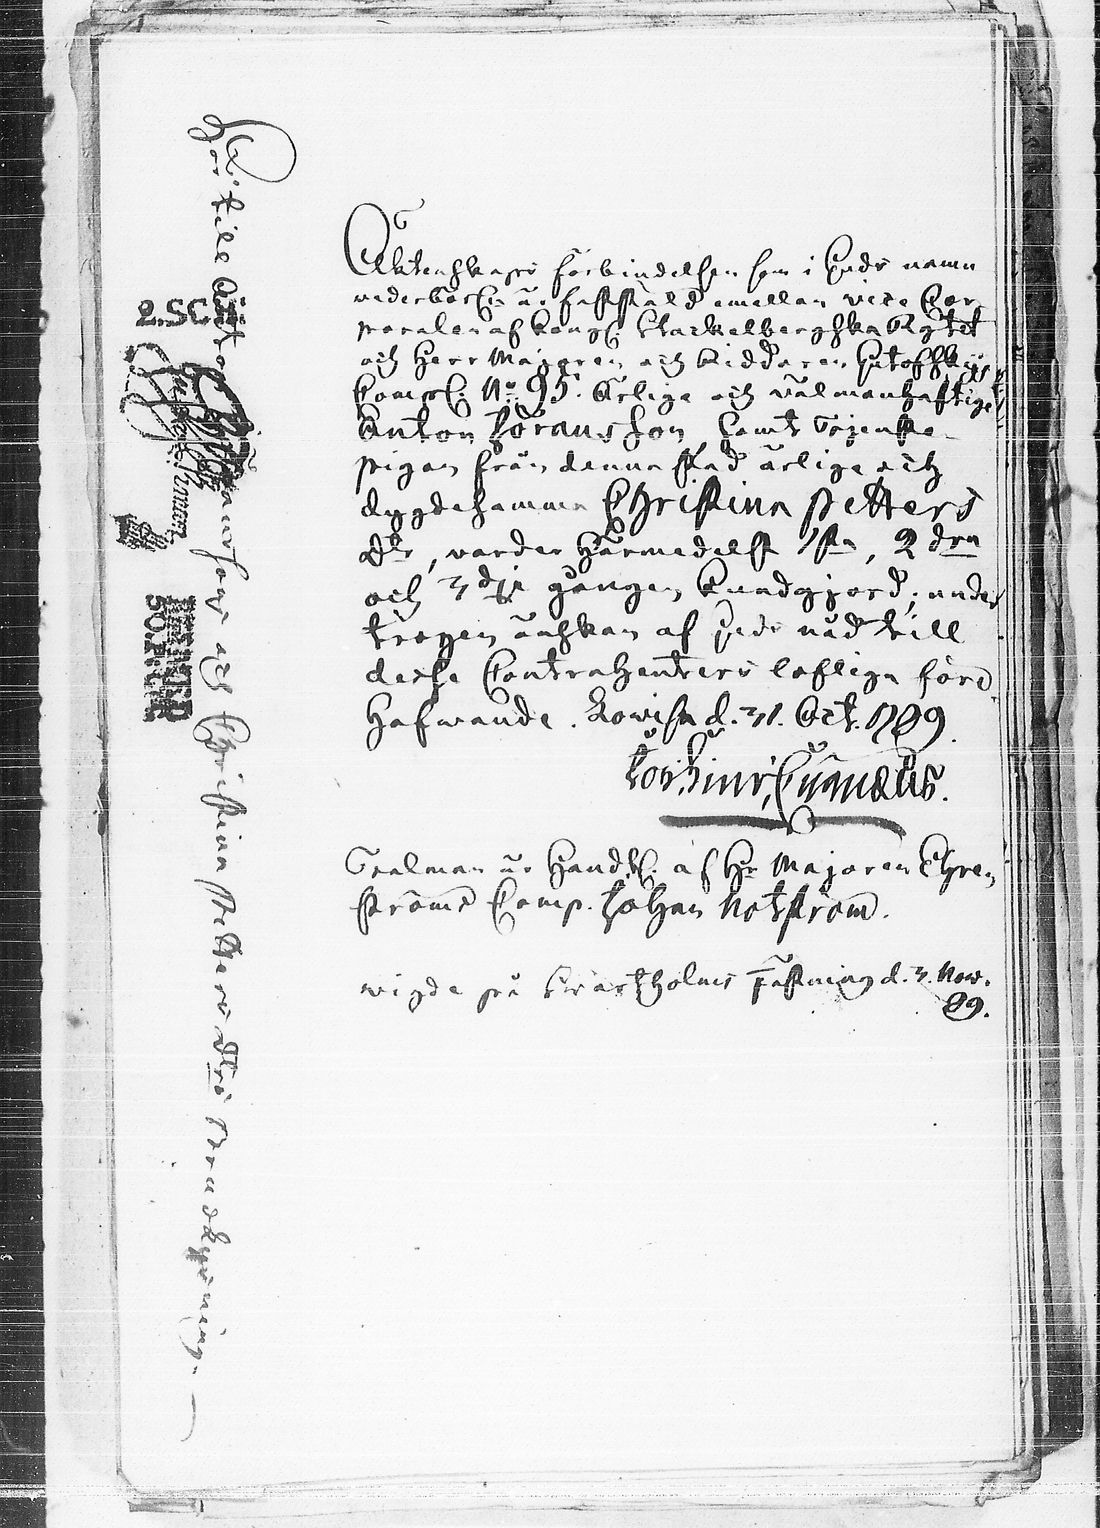 Äktenskaps förbindelsen som i Guds namn
vederbörl: är fastställd emellan vice Cor
poralen af kongl. Stackelbergska Regtet
och Herr Majoren och Ridderen
Comp: No 95. ärlige och välmanhaftige
Anton Göransson, samt tjenste
pigan från denna stad ärliga och
dygdesamma Christina Petters
dtr, varder härmedelst 1sta, 2dra
och 3dje gången kundgjord; under
trogen önskan af Guds nåd till
desse Contrahenters lofliga före
hafwande. Lowisa d. 31. Oct. 1789.
Cygnæus.
Talman är Handtl: af Hr Majoren Ehren
ströms Comp. Johan Notström.
wigde på Swartholms Fästning d. 3. Nov.
89.
2. SC
Hörer till Anton Göranssons och Christina Petters dtrs